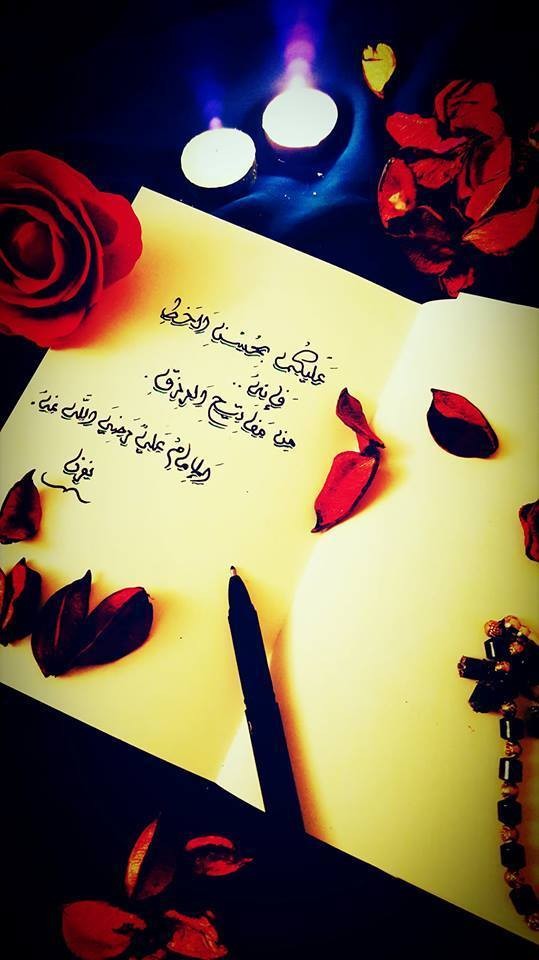 عَلَيْكُم بِحُسْنِ الْخَطِّ
فَإِنَّهُ ..
مِنْ مَفَاتِيحِ الرِّزْقِ .
الإِمَامُ عَلِيٌّ رَضِيَ اللَّهُ عَنهُ .